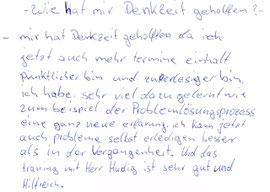 - Wie hat mir Denkzeit geholfen? -
- mir hat Denkzeit geholfen da ich
jetzt auch mehr termine einhalt
Pünktlicher bin und zuverlesager bin,
ich habe sehr viel dazu gelernt wie
zum beispiel der Problemlösungsprozess
eine ganz neue erfarung. ich kann jetzt
auch probleme selbst erledigen besser
als in der Vergangenheit. Und das
traning mit Herr Hudig ist sehr gut und
Hilfreich.